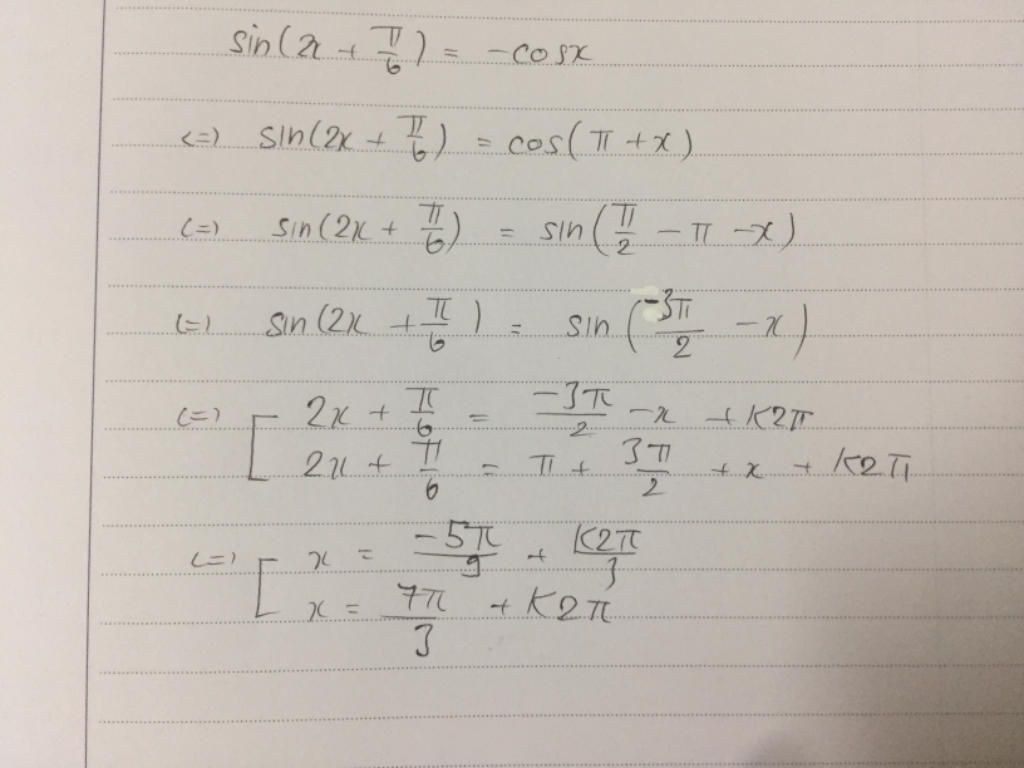 sin(2x + π/6) = -cosx
<=> sin(2x + π/6) = cos(π + x)
<=> sin(2x + π/6) = sin(π/2 - π - x)
<=> sin(2x + π/6) = sin(-3π/2 - x)
<=> [ 2x + π/6 = -3π/2 - x + K2π
2x + π/6 = π + 3π/2 + x + K2π
<=> [ x = -5π/9 + K2π/3
x = 7π/3 + K2π